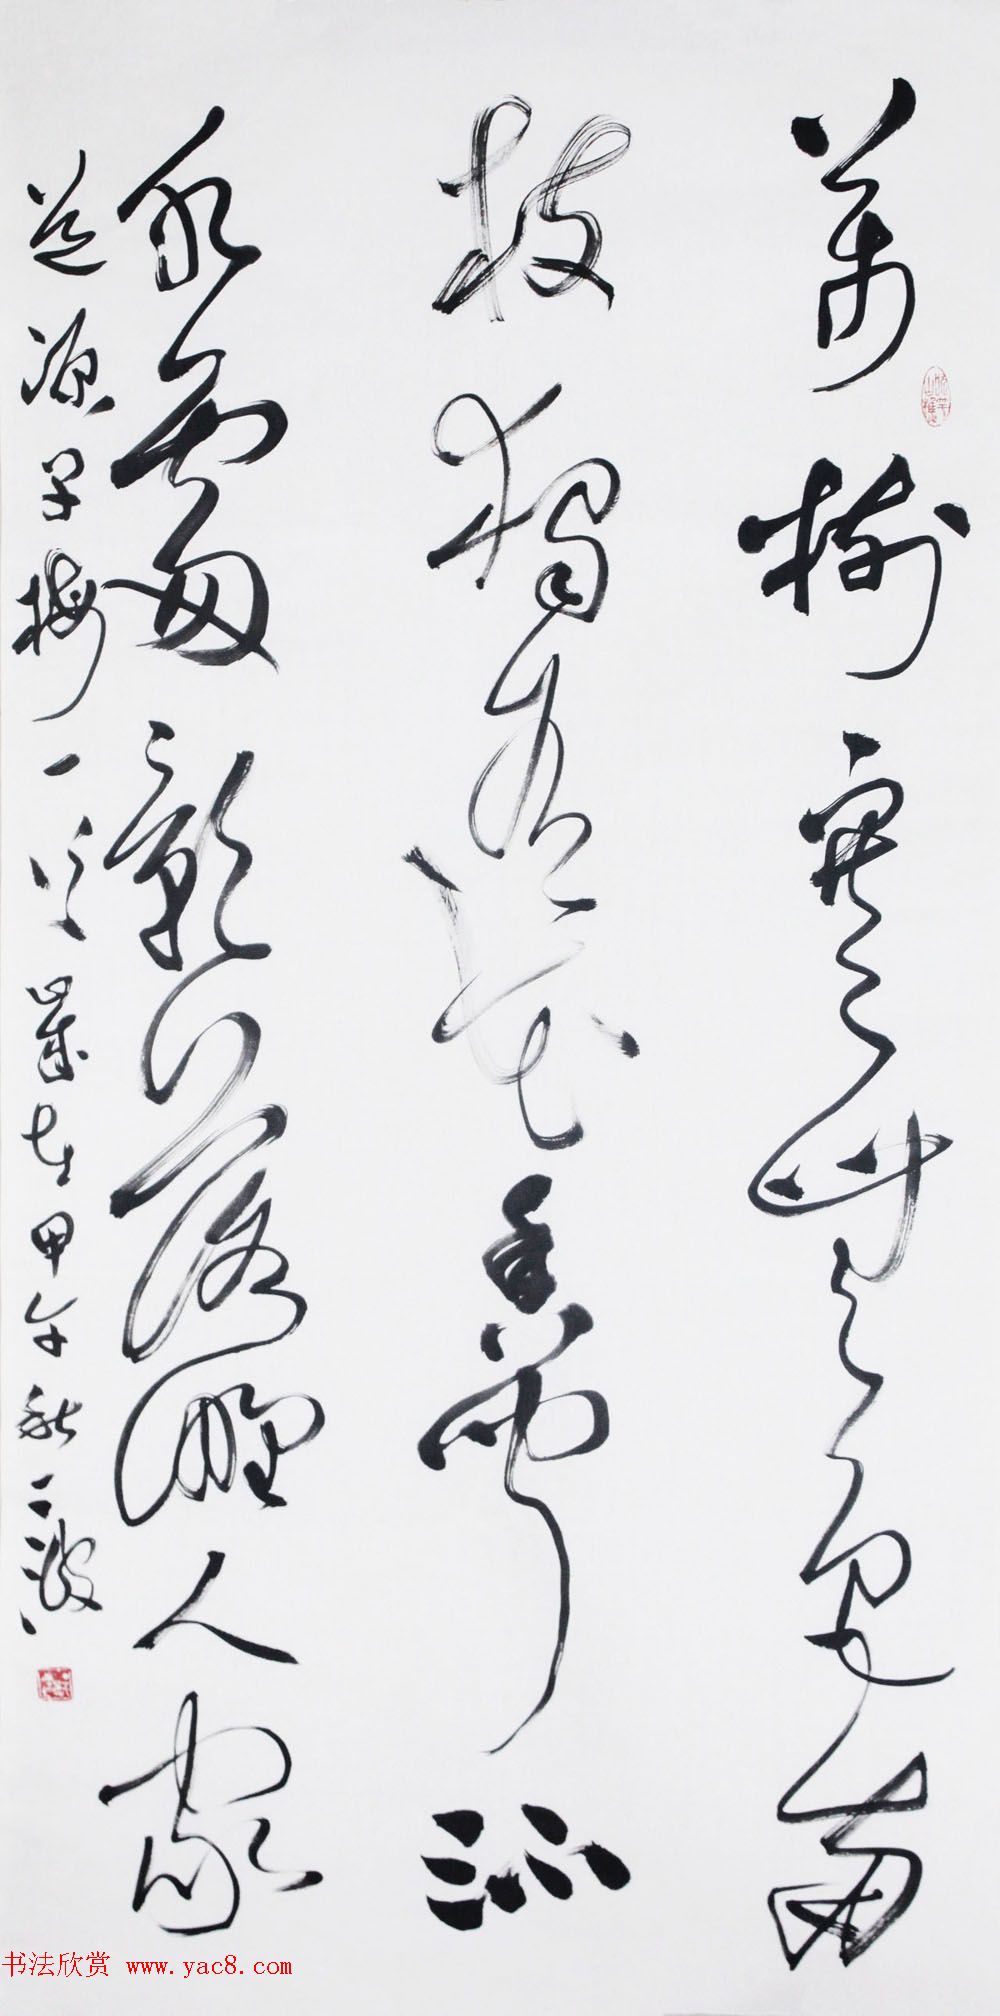 萬樹寒無色南
枝獨有花香聞流
水處影落野人家
道源早梅一首歲在甲午秋一波
书法欣赏 www.yac8.com